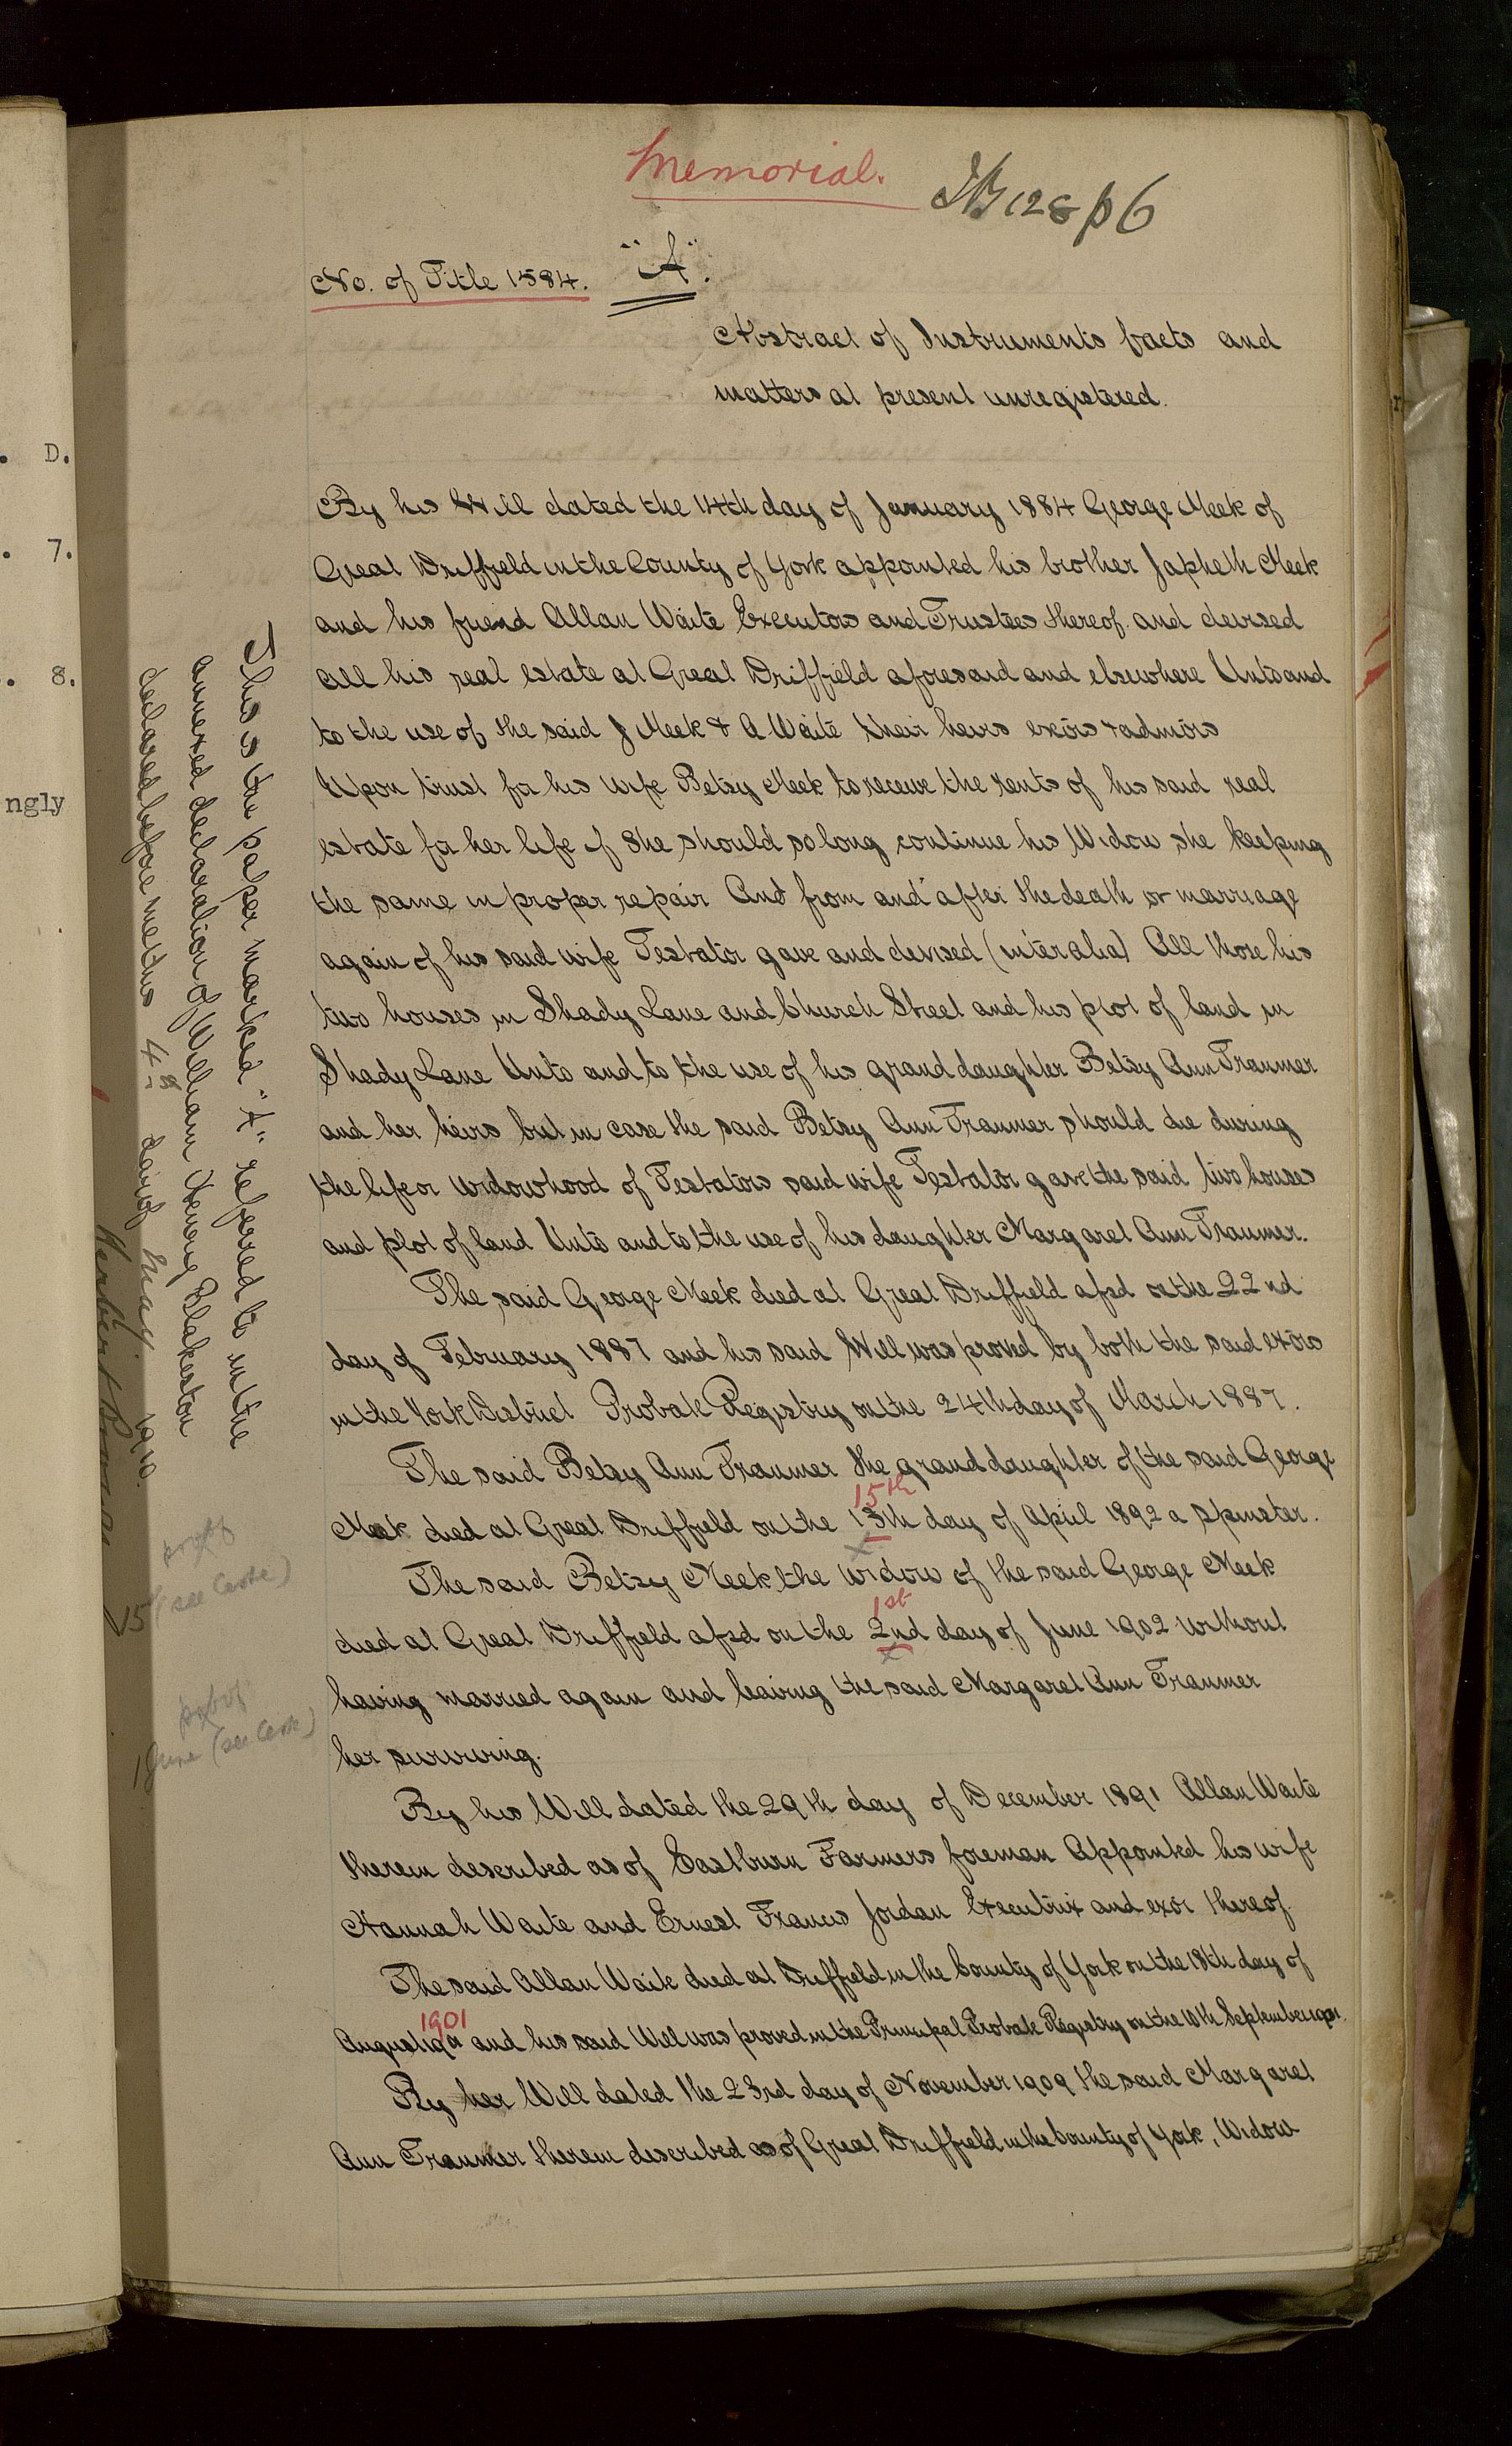 Memorial.
JB 128 p 6
No. of Title 1584. "A".
Abstract of Instruments facts and
matters at present unregistered.
By his Will dated the 14th day of January 1884 George Meek of
Great Driffield in the County of York appointed his brother Japheth Meek
and his friend Allan Waite Executors and Trustees thereof and devised
all his real estate at Great Driffield aforesaid and elsewhere Unto and
to the use of the said J Meek & A Waite their heirs exōrs & admōrs
Upon trust for his wife Betsy Meek to receive the rents of his said real
estate for her life if she should so long continue his Widow she keeping
the same in proper repair And from and after the death or marriage
again of his said wife Testator gave and devised (inter alia) All those his
two houses in Shady Lane and Church Street and his plot of land in
Shady Lane Unto and to the use of his grand daughter Betsy Ann Tranmer
and her heirs but in case the said Betsy Ann Tranmer should die during
the life or widowhood of Testators said wife Testator gave the said two houses
and plot of land Unto and to the use of his daughter Margaret Ann Tranmer.
The said George Meek died at Great Driffield afsd on the 22nd
day of February 1887 and his said Will was proved by both the said exōrs
in the York District Probate Registry on the 24th day of March 1887.
The said Betsy Ann Tranmer the grand daughter of the said George
15th
Meek died at Great Driffield on the 13th day of April 1892 a spinster.
x
The said Betsy Meek the widow of the said George Meek
1st
died at Great Driffield afsd on the 2nd day of June 1902 without
x
having married again and leaving the said Margaret Ann Tranmer
her surviving.
By his Will dated the 29th day of December 1891 Allan Waite
therein described as of Eastburn Farmers foreman Appointed his wife
Hannah Waite and Ernest Francis Jordan Executrix and exōr thereof.
The said Allan Waite died at Driffield in the County of York on the 18th day of
1901
August 1901 and his said Will was proved in the Principal Probate Registry on the 10th September 1901.
By her Will dated the 23rd day of November 1909 the said Margaret
Ann Tranmer therein described as of Great Driffield in the County of York, Widow
This is the paper marked "A" referred to in the
annexed declaration of William Henry Blakeston
declared before me this 4th day of May 1910.
Herbert
15th (see Certe)
1 June (see Certe)
. D.
. 7.
. 8.
ngly